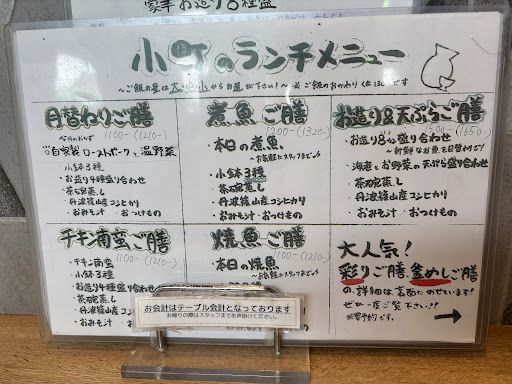 豪華お造り8種盛
小町のランチメニュー
～ご飯の量は大・中・小からお選び下さい！～ ※ご飯のおかわりは
日替わりご膳
1100-(1210-)
今日のおかず
自家製ローストポークと温野菜
・小鉢3種
・お造り4種盛り合わせ
・茶碗蒸し
・丹波篠山産コシヒカリ
・おみそ汁 ・おつけもの
煮魚ご膳
1200-(1320-)
・本日の煮魚
～お気軽にスタッフまで～
・小鉢3種
・茶碗蒸し
・丹波篠山産コシヒカリ
・おみそ汁 ・おつけもの
お造り&天ぷらご膳
1500-(1650-)
・お造り8種盛り合わせ
～新鮮なお魚を日替わりで！
・海老とお野菜の天ぷら盛り合わせ
・茶碗蒸し
・丹波篠山産コシヒカリ
・おみそ汁 ・おつけもの
チキン南蛮ご膳
1100-(1210-)
・チキン南蛮
・小鉢3種
・お造り4種盛り合わせ
・茶碗蒸し
・丹波篠山産
・おみそ汁
焼魚ご膳
1100-(1210-)
・本日の焼魚
～お気軽にスタッフまで～
大人気！
彩りご膳 釜めしご膳
の詳細は裏面にのせています！
ぜひ一度ご覧下さい!!
※要予約です。
お会計はテーブル会計となっております
お帰りの際はスタッフまでお声掛けください。